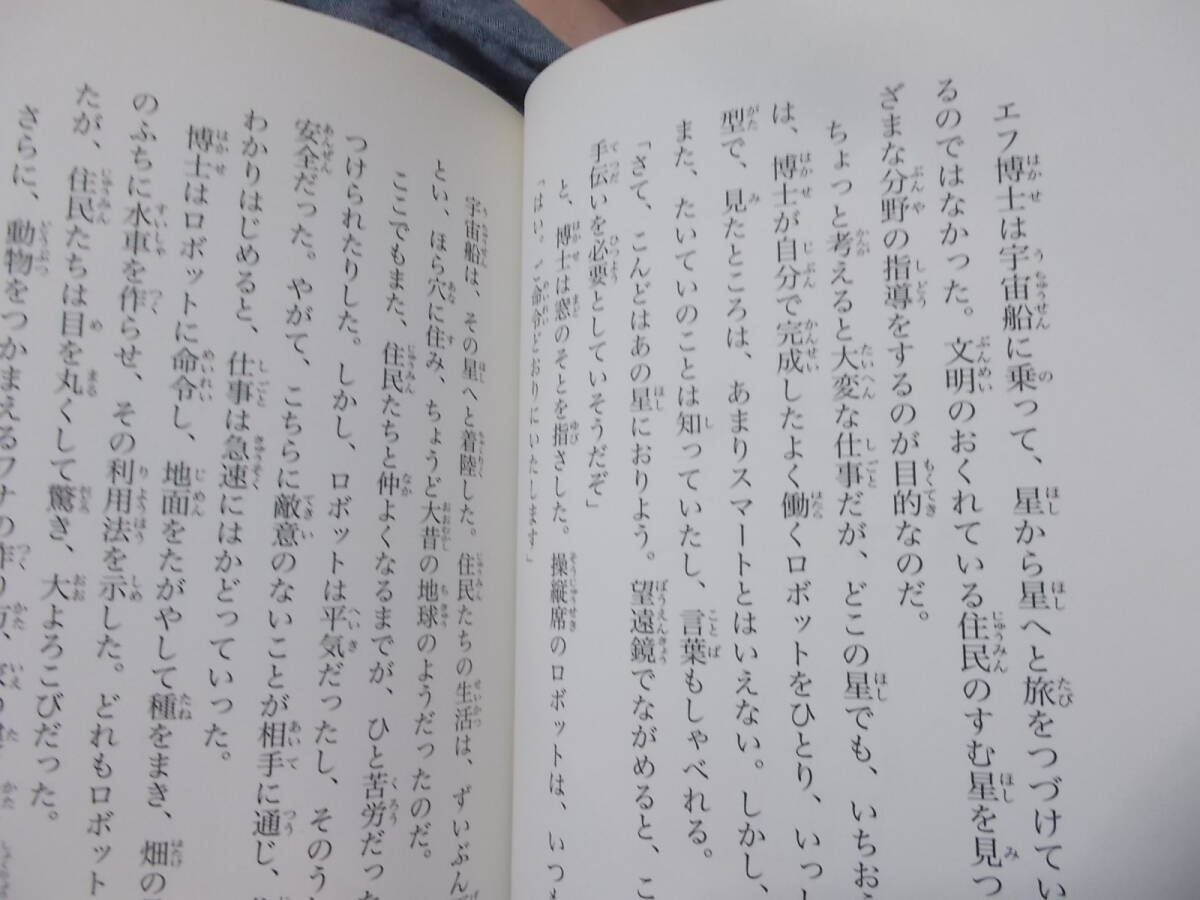 エフ博士は宇宙船に乗って、星から星へと旅をつづけてい
るのではなかった。文明のおくれている住民のすむ星を見つ
ざまな分野の指導をするのが目的なのだ。
ちょっと考えると大変な仕事だが、どこの星でも、いちお
は、博士が自分で完成したよく働くロボットをひとり、いっし
型で、見たところは、あまりスマートとはいえない。しかし、
また、たいていのことは知っていたし、言葉もしゃべれる。
「さて、こんどはあの星におりよう。望遠鏡でながめると、こ
手伝いを必要としていそうだぞ」
と、博士は窓のそとを指さした。操縦席のロボットは、いつも
「はい。ご命令どおりにいたします」
宇宙船は、その星へと着陸した。住民たちの生活は、ずいぶん
とい、ほら穴に住み、ちょうど大昔の地球のようだったのだ。
ここでもまた、住民たちと仲よくなるまでが、ひと苦労だった
つけられたりした。しかし、ロボットは平気だったし、そのう
安全だった。やがて、こちらに敵意のないことが相手に通じ、
わかりはじめると、仕事は急速にはかどっていった。
博士はロボットに命令し、地面をたがやして種をまき、畑の
のふちに水車を作らせ、その利用法を示した。どれもロボット
たが、住民たちは目を丸くして驚き、大よろこびだった。
さらに、動物をつかまえるワナの作り方、家の建て方